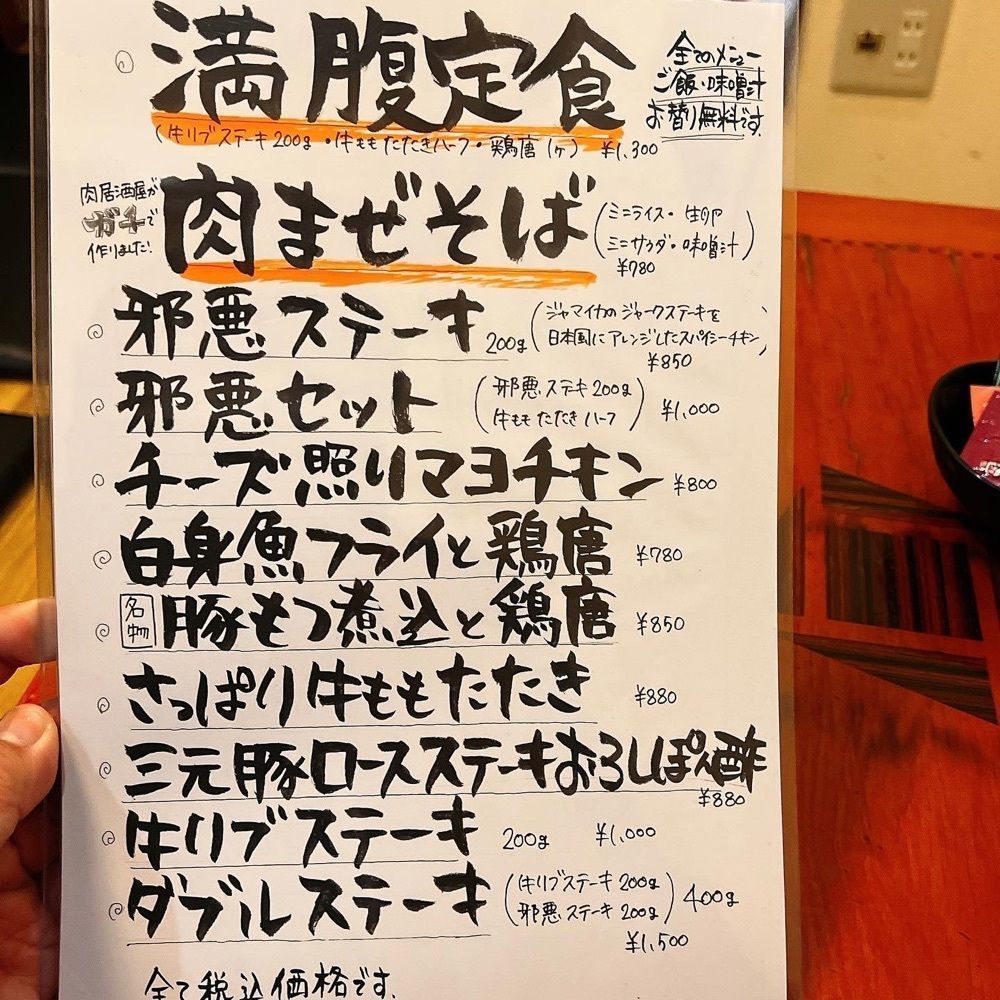 満腹定食
全てのメニュー
ご飯・味噌汁
お替り無料です。
(牛リブステーキ200g・牛ももたたきハーフ・鶏唐(1ヶ) ¥1,300
肉居酒屋が
ガチで
作りました!
肉まぜそば
(ミニライス・生卵
ミニサラダ・味噌汁)
¥780
邪悪ステーキ 200g
(ジャマイカのジャークステーキを
日本国にアレンジしたスパイシーチキン)
¥850
邪悪セット
(邪悪ステキ200g
牛ももたたきハーフ) ¥1,000
チーズ照りマヨチキン ¥800
白身魚フライと鶏唐 ¥780
名物 豚もつ煮込と鶏唐 ¥850
さっぱり牛ももたたき ¥880
三元豚ロースステーキおろしぽん酢
¥880
牛リブステーキ 200g ¥1,000
ダブルステーキ
(牛リブステーキ200g
邪悪ステーキ200g) 400g
¥1,500
全て税込価格です。